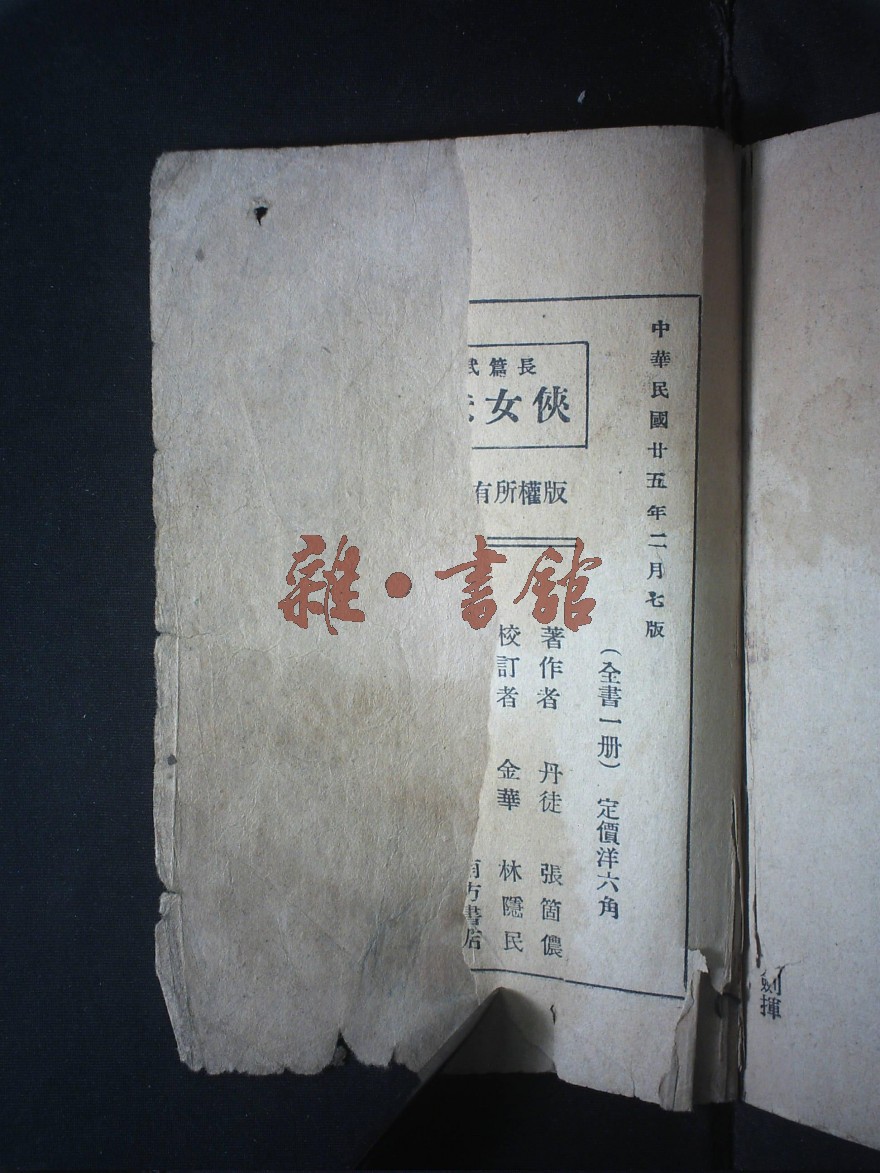 中華民國廿五年二月七版
(全書一册) 定價洋六角
長篇武
俠女
版權所有
著作者 丹徒 張箇儂
校訂者 金華 林隱民
南方書店
雜·書館
劍揮